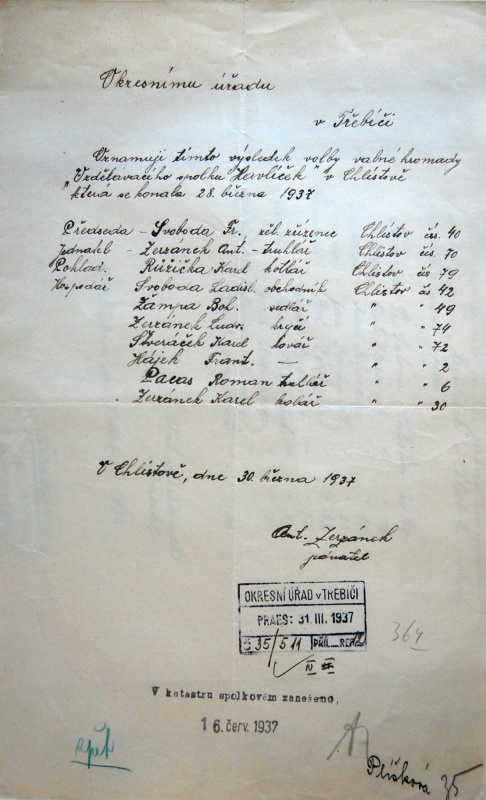 Okresnímu úřadu
v Třebíči
Oznamuji tímto výsledek volby valné hromady
"Vzdělávacího spolku Havlíček" v Chlístově
která se konala 28. března 1937
Předseda - Svoboda Fr., zřízenec Chlístov čís. 40
Jednatel - Zerzánek Ant. - truhlář Chlístov čís. 70
Poklad. Růžička Karel kotlář Chlístov čís 79
Hospodář Svoboda Ladisl. obchodník Chlístov čs 42
Žampa Boh. sedlář " " 49
Zerzánek Ludv. krejčí " " 74
Škvoráček Karel kovář " " 72
Hájek Frant. — " " 2
Pacas Roman truhlář " " 6
Zerzánek Karel kolář " " 30
V Chlístově, dne 30. března 1937
Ant. Zerzánek
jednatel
OKRESNÍ ÚŘAD v TŘEBÍČI
PRAES: 31. III. 1937
Č 35/511 PŘÍL.
IV
364
V katastru spolkovém zaneseno,
1 6. červ. 1937
Zpět
Plíšková 35